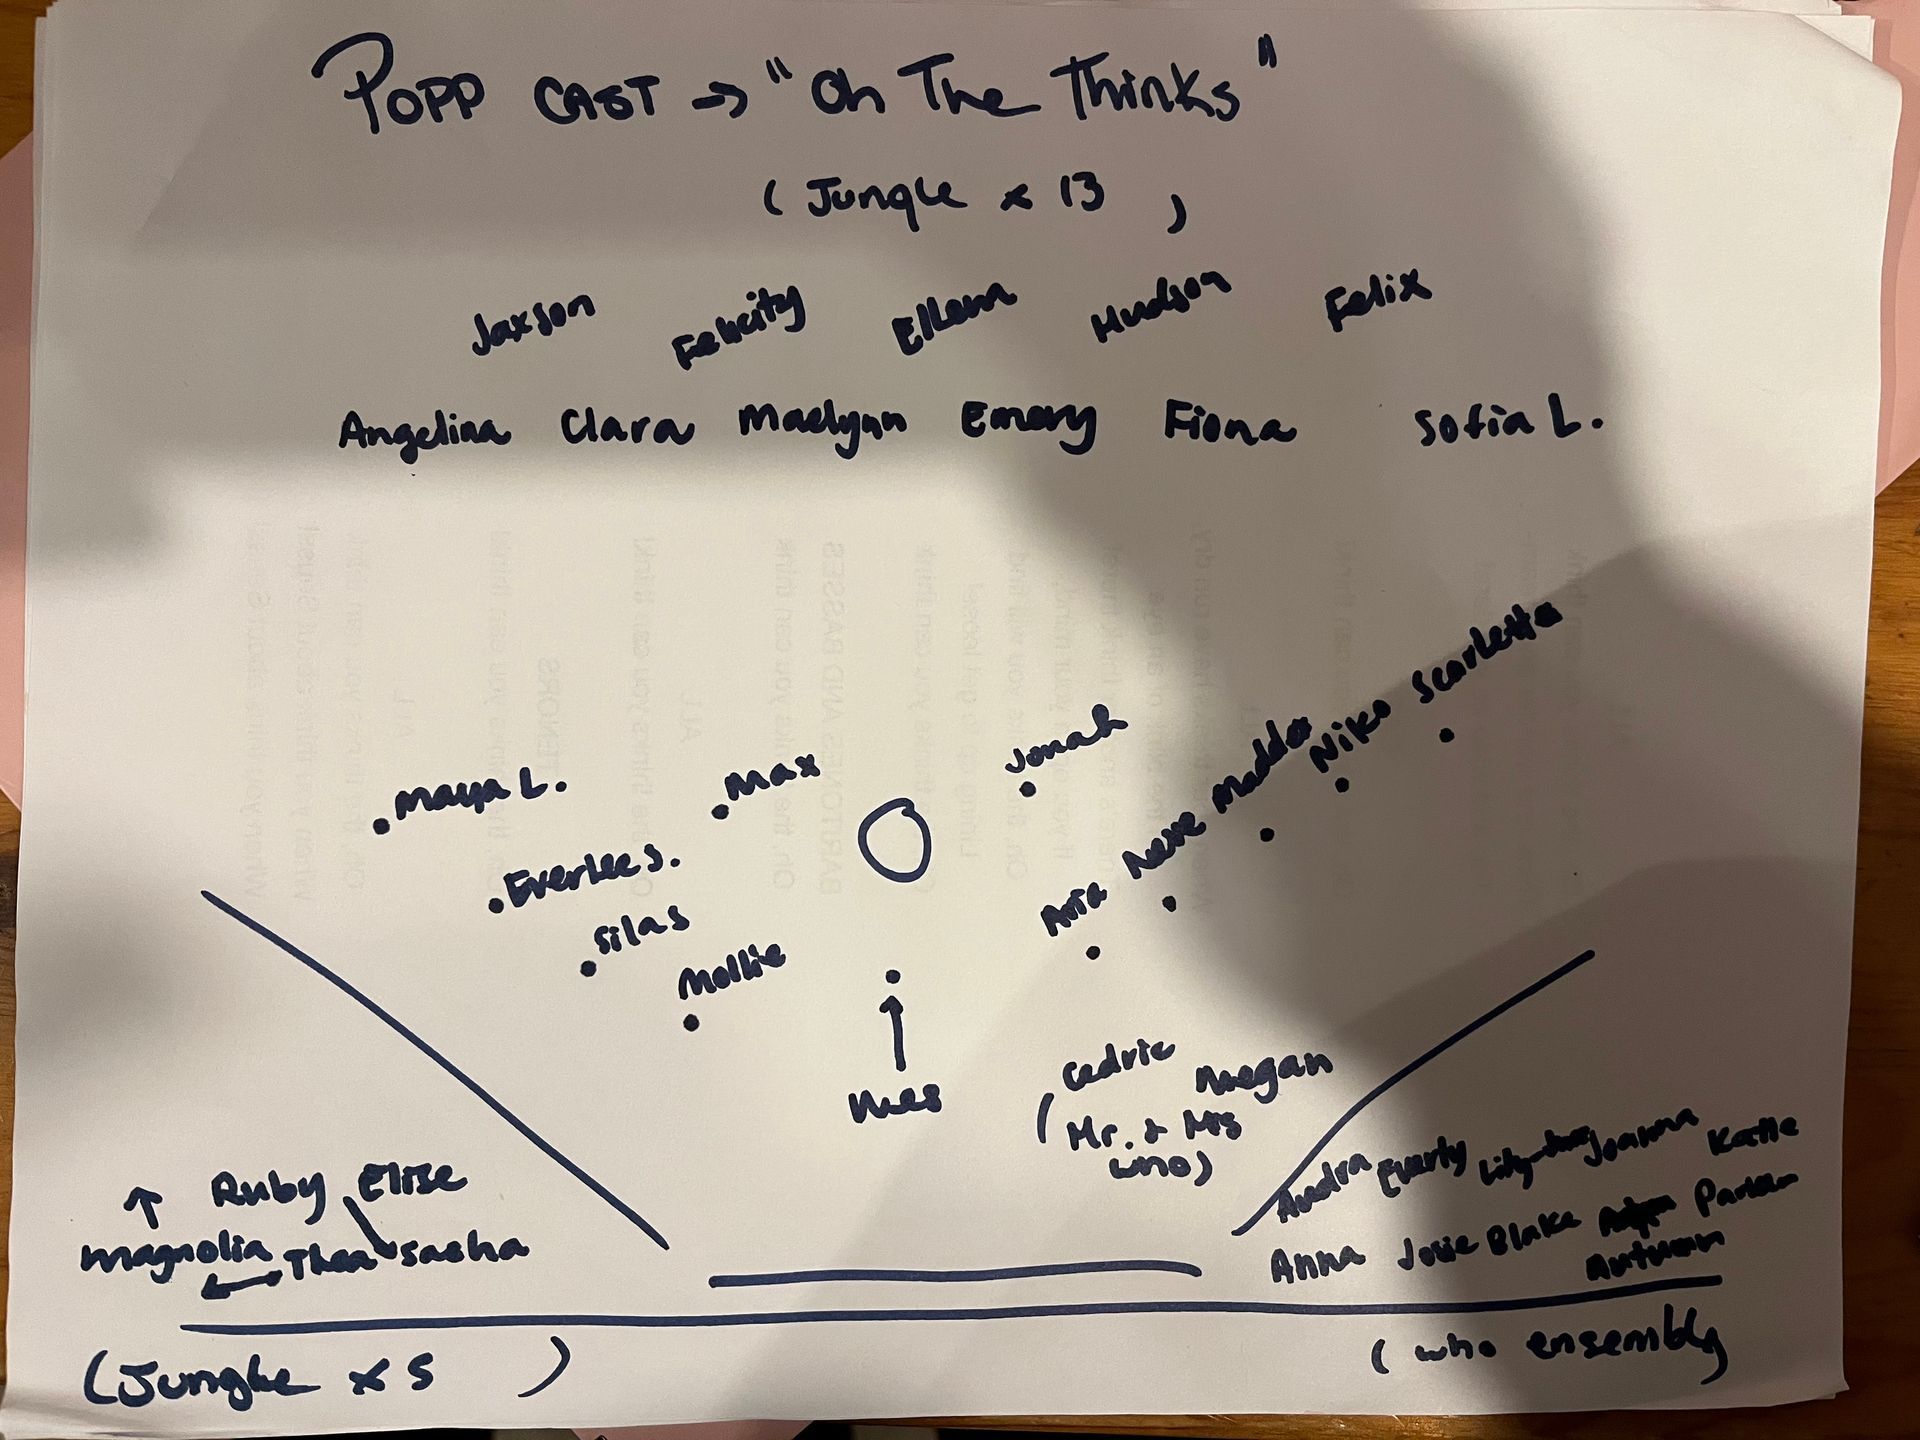 POPP CAST → "Oh The Thinks"
(Jungle x 13 )
Jaxson Felicity Ellena Hudson Felix
Angelina Clara Maelynn Emery Fiona Sofia L.
Scarletta
Niko
Maddox
Neve
Jonah
Max
Maya L.
Everlee S.
Aria
Silas
Mollie
Cedric Meegan
(Mr. & Mrs
who)
Ruby Elise
Magnolia Thea Sasha
Audra Everly Joanna Katie
Anna Josie Blake Parker
Autumn
(Jungle x 5 )
(who ensembly